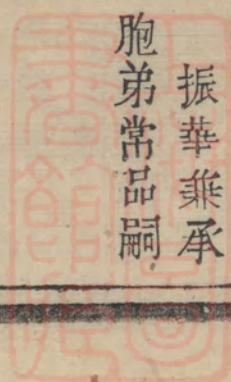 振華兼承
胞弟常品嗣